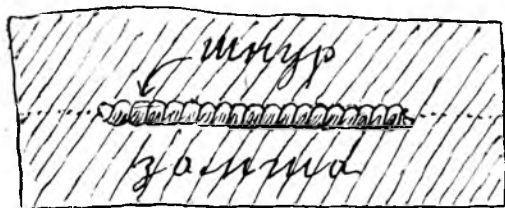 шнур
замша